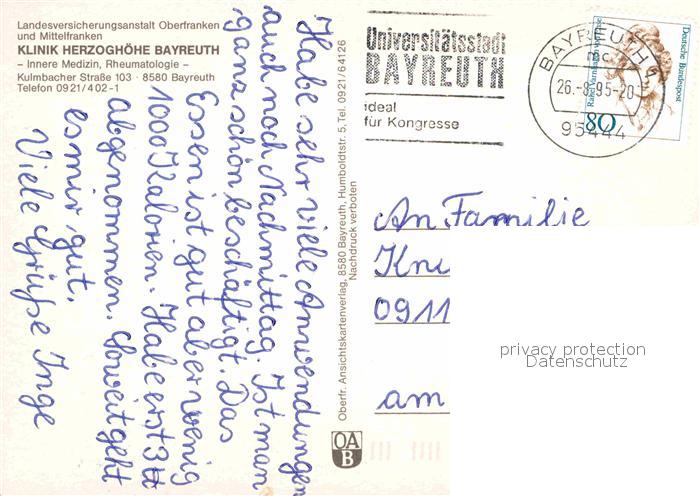 Landesversicherungsanstalt Oberfranken
und Mittelfranken
KLINIK HERZOGHÖHE BAYREUTH
– Innere Medizin, Rheumatologie –
Kulmbacher Straße 103 · 8580 Bayreuth
Telefon 0921/402-1
Habe sehr viele Anwendungen
auch noch Nachmittag. Ist man
ganz schön beschäftigt. Das
Essen ist gut aber wenig
1000 Kalorien. Habe erst 3 ℔
abgenommen. Soweit geht
es mir gut.
Viele Grüße Inge
Oberfr. Ansichtskartenverlag, 8580 Bayreuth, Humboldtstr. 5, Tel. 0921/64126
Nachdruck verboten
OA
B
Universitätsstadt
BAYREUTH
ideal
für Kongresse
BAYREUTH 1
mc
26.-8.95-20
95444
Deutsche Bundespost
Rahel Varnhagen von Ense
80
An Familie
Kni
0911
am
privacy protection
Datenschutz